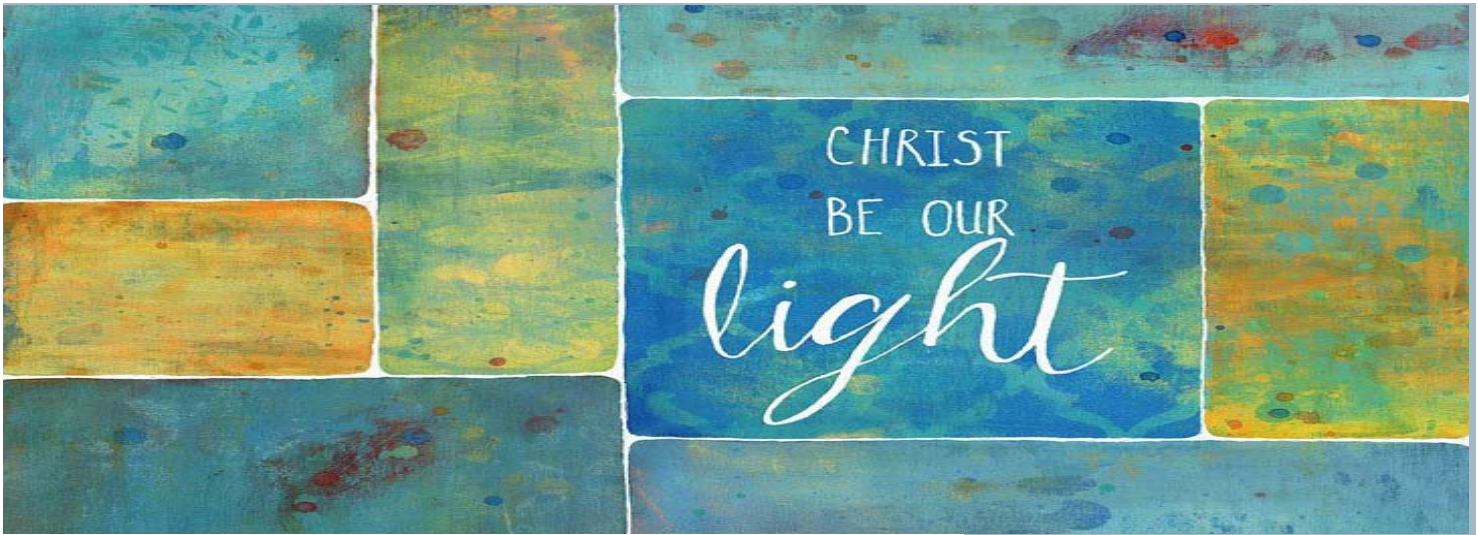 CHRIST
BE OUR
light